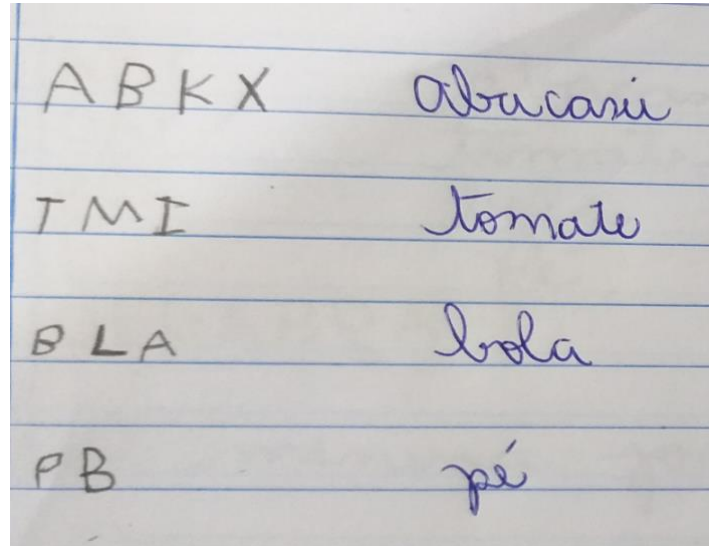 ABKX abacaxi
TMI tomate
BLA bola
PB pé